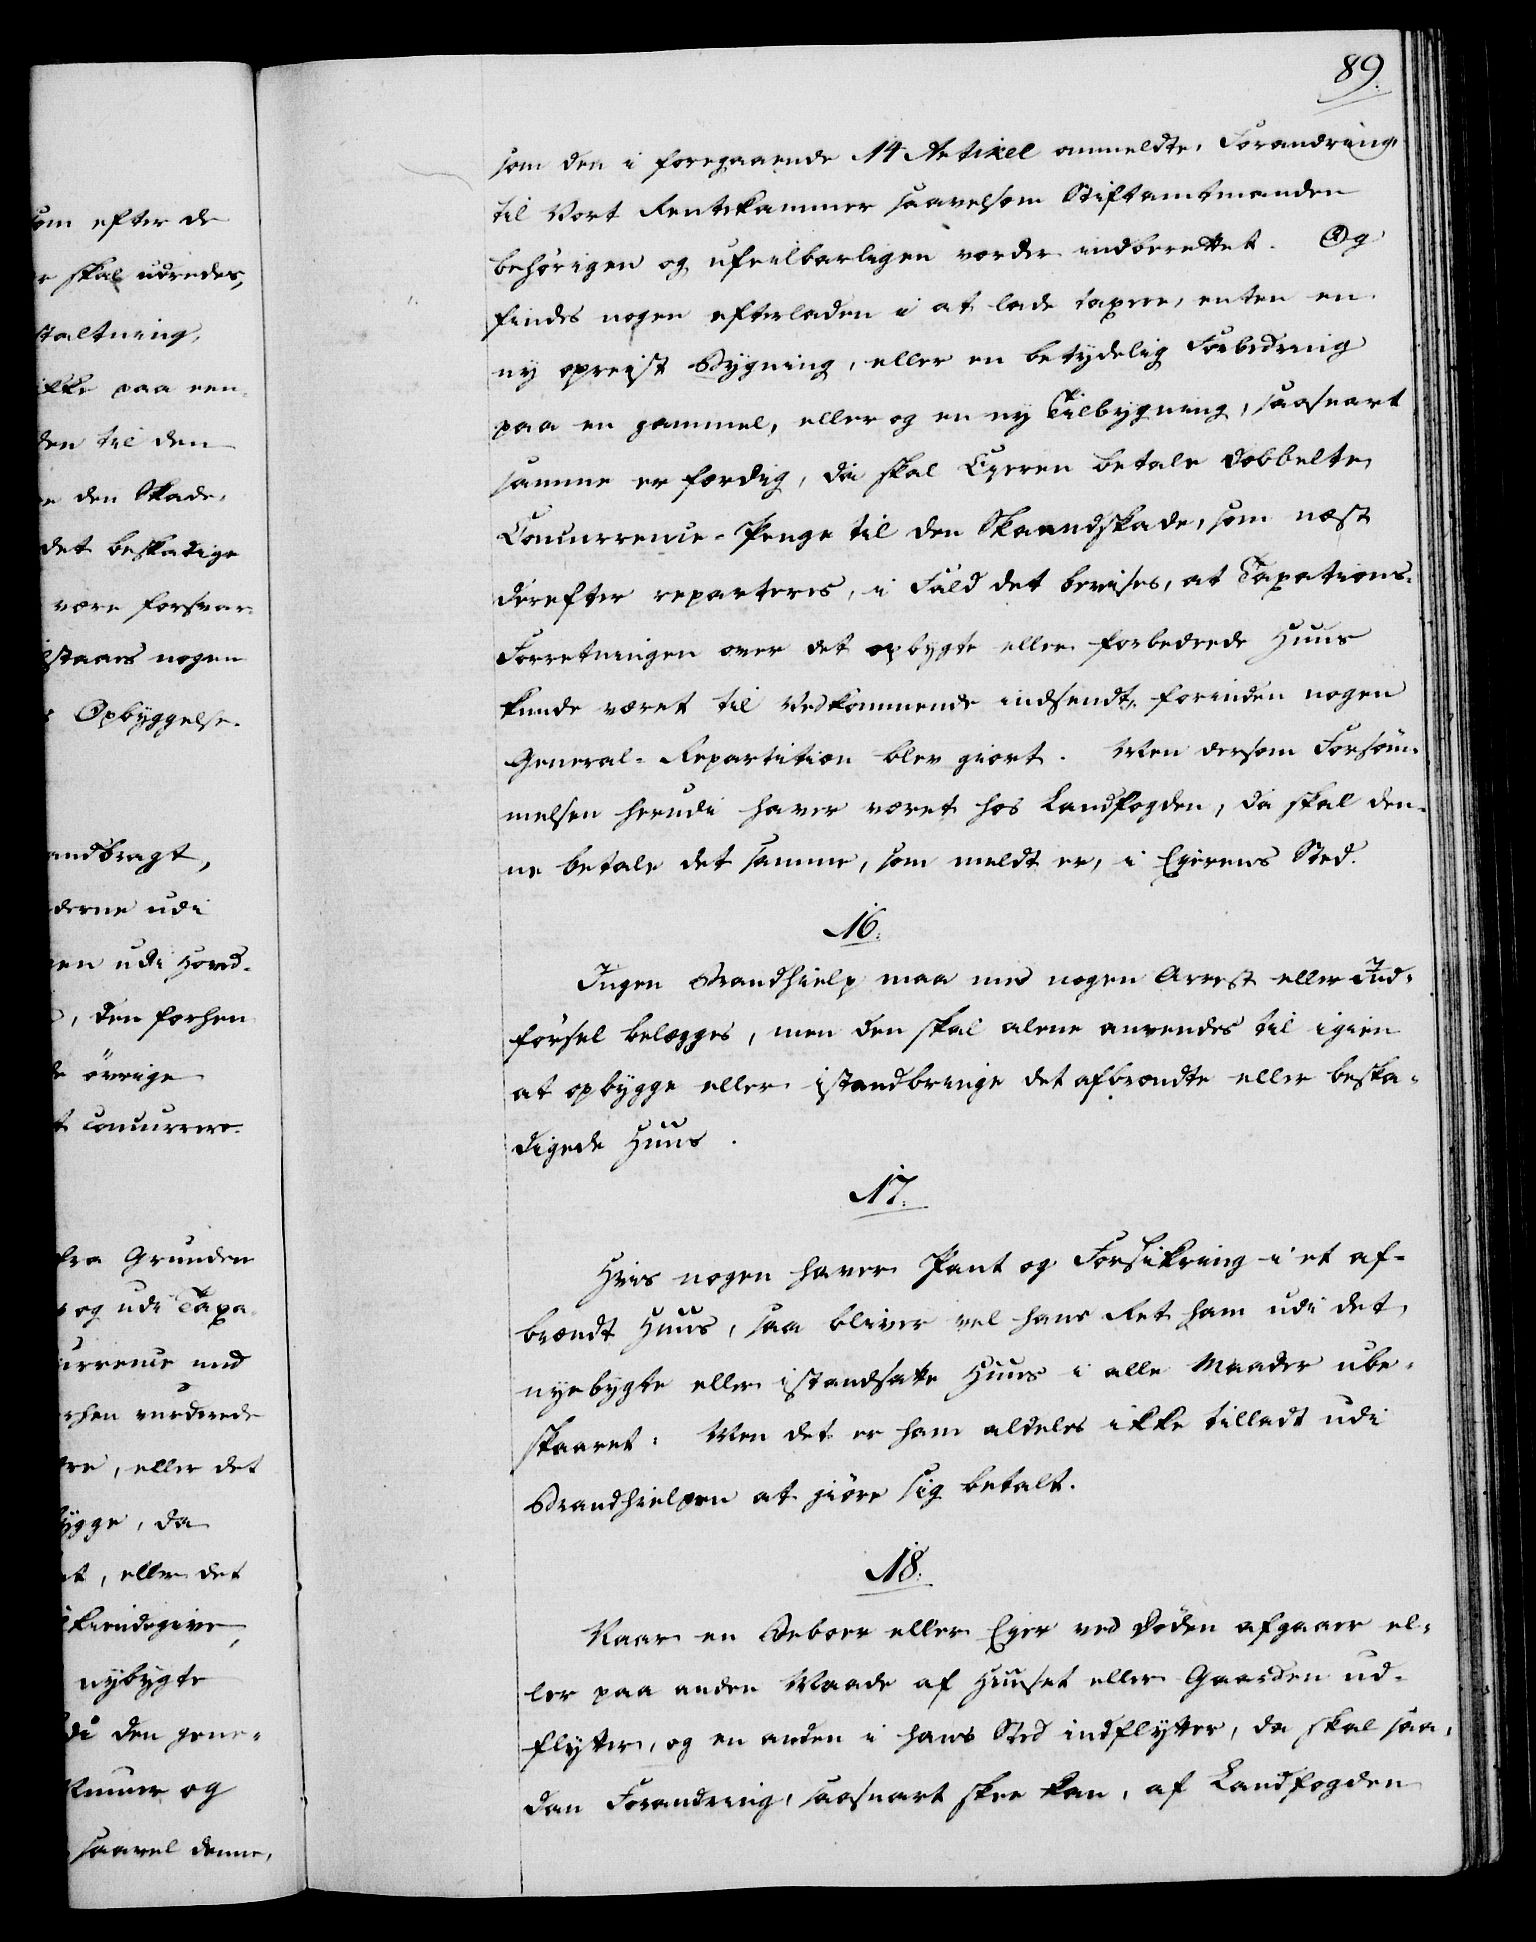 89.
som den i foregaaende 14 Artikel anmeldte, Forandring,
til Vort Rentekammer saavelsom Stiftamtmanden
behörigen og ufeilbarligen vorder indberettet. Og
findes nogen efterladen i at lade taxere, enten en
ny opreist Bygning, eller en betydelig Forbedring
paa en gammel, eller og en ny Tilbygning, saasnart
samme er færdig, da skal Eyeren betale dobbelte
Concurrence-Penge til den Brandskade, som næst
derefter reparteres, i Fald det bevises, at Taxations-
Forretningen over det opbygte eller forbedrede Huus
kunde været til Vedkommende indsendt, forinden nogen
General-Repartition blev giort. Men dersom Forsöm-
melsen herudi haver været hos Landfogden, da skal den-
ne betale det samme, som meldt er, i Eyerens Sted.
16.
Ingen Brandhielp maa med nogen Arrest eller Ind-
försel belægges, men den skal alene anvendes til igien
at opbygge eller istandbringe det afbrændte eller beska-
digede Huus.
17.
Hvis nogen haver Pant og Forsikring i et af-
brændt Huus, saa bliver vel hans Ret ham udi det
nyebygte eller istandsatte Huus i alle Maader ube-
skaaret: Men det er ham aldeles ikke tilladt udi
Brandhielpen at giöre sig betalt.
18.
Naar en Beboer eller Eyer ved Döden afgaaer el-
ler paa anden Maade af Huuset eller Gaarden ud-
flytter, og en anden i hans Sted indflytter, da skal saa-
dan Forandring, saasnart skee kan, af Landfogden
som efter de
skal udredes,
staltning,
ikke paa een
den til den
den Skade,
det beskadige
være forsvar-
staaes nogen
Opbyggelse.
andbragt,
derne udi
en udi Hoved-
, den forhen
övrige
concurrere
fra Grunden
og udi Taxa-
urrence med
rhen vurderede
, eller det
ygge, da
, eller det
kiendegive,
nybygte
di den gene-
mmer og
saavel denne,